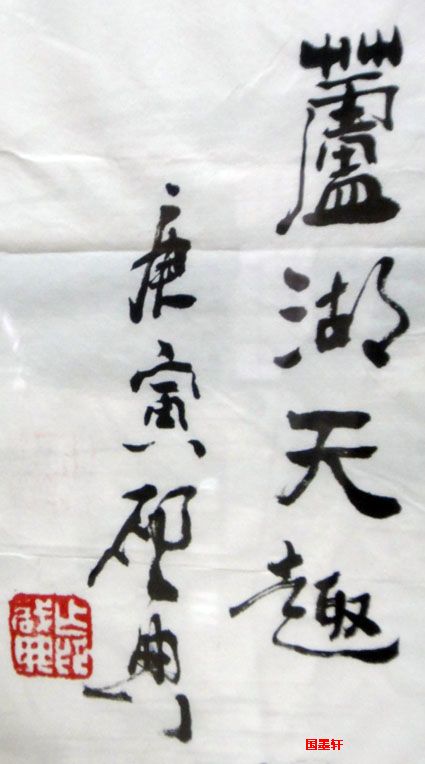 蘆湖天趣
庚寅
国墨轩